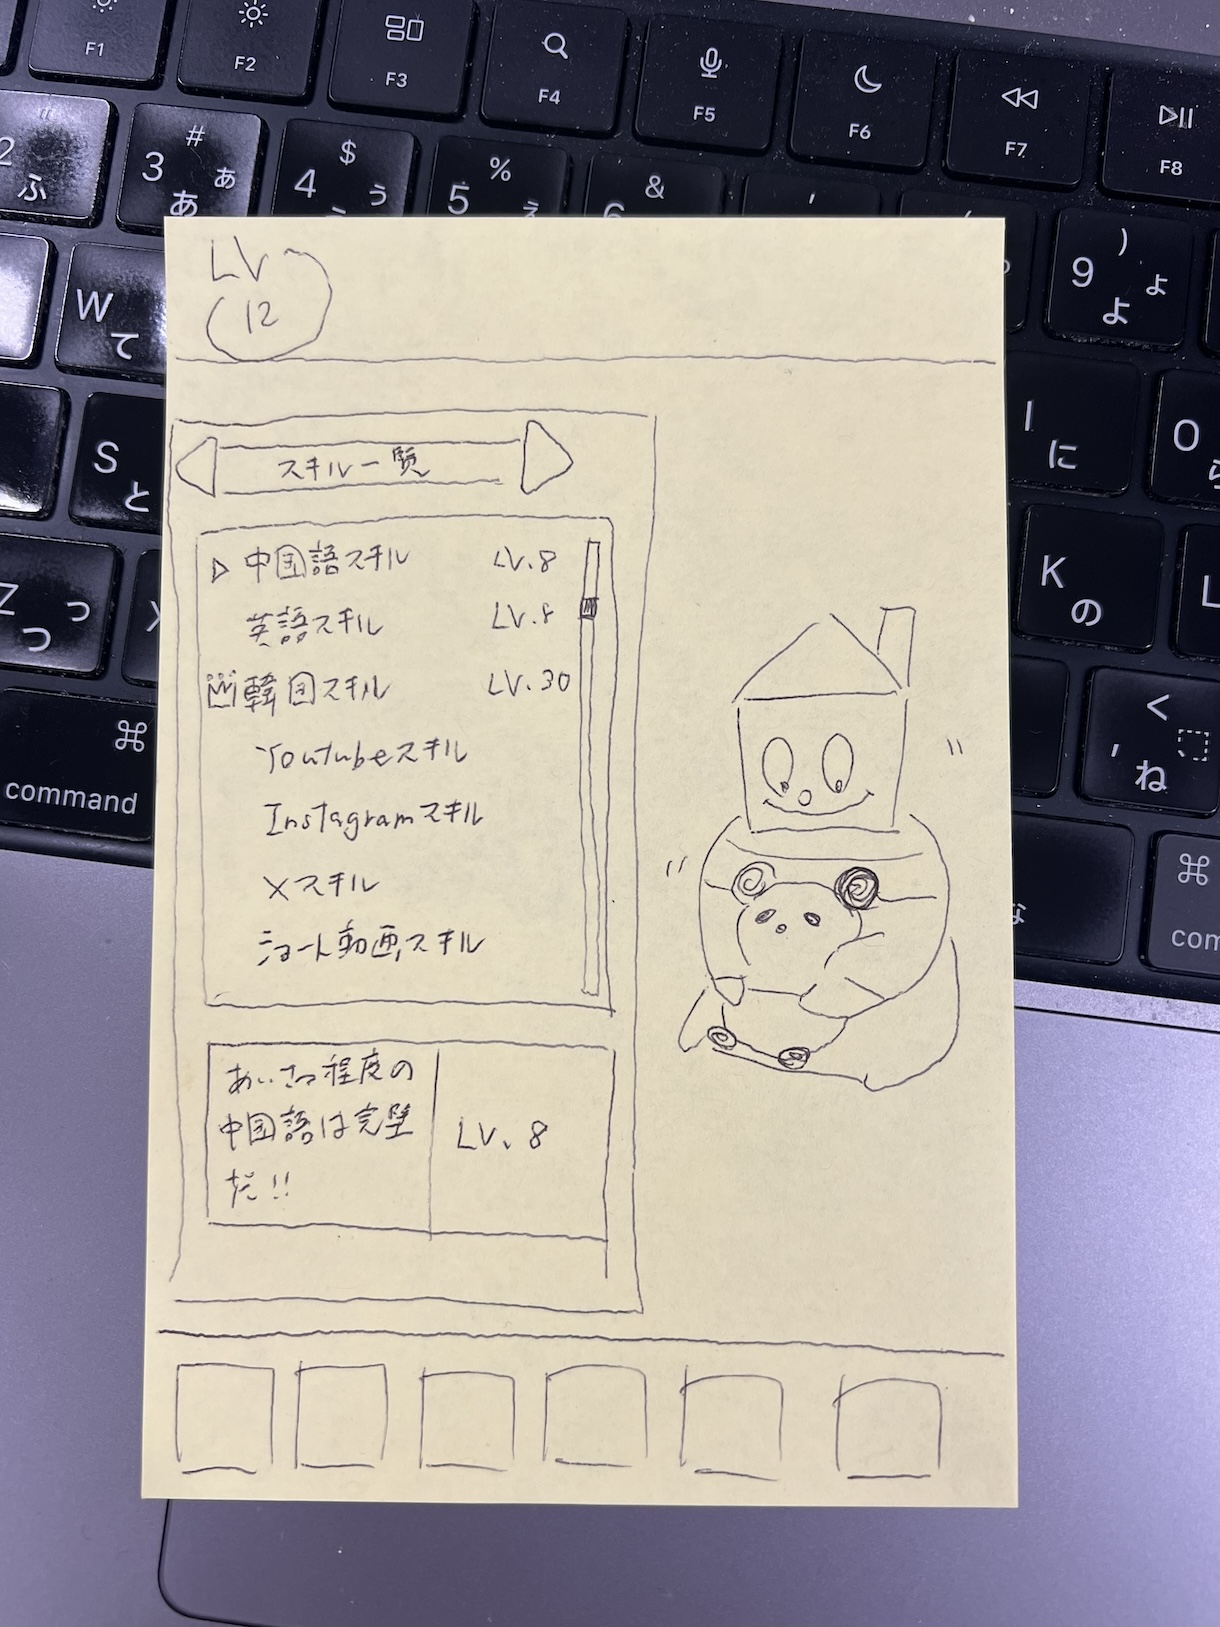 F1
F2
F3
F4
F5
F6
F7
F8
2 ふ
# 3 ぁ あ
$ 4 ぅ
% 5 ぇ
& 6
'
) 9 ょ よ
W て
S と
Z っ つ
I に
O ら
K の
L
< , ね
⌘
command
⌘
com
LV
12
スキル一覧
▷ 中国語スキル LV.8
英語スキル LV.8
韓国スキル LV.30
Youtubeスキル
Instagramスキル
Xスキル
ショート動画スキル
あいさつ程度の
中国語は完璧
だ!!
LV.8